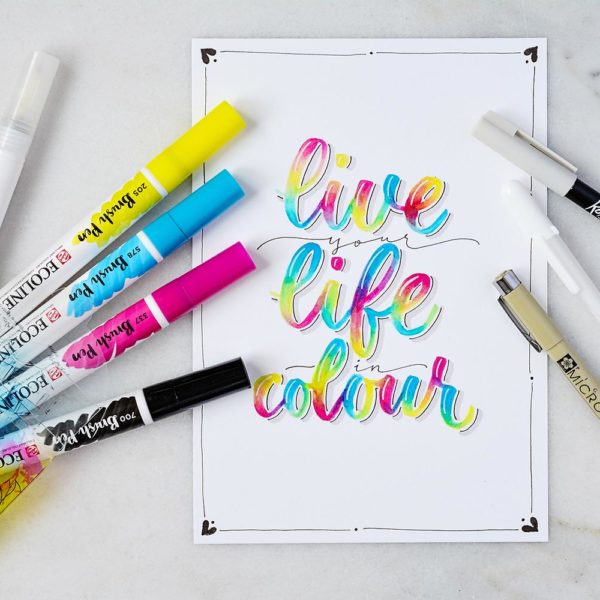 live
your
life
in
colour
205 Brush Pen
ECOLINE
578 Brush Pen
ECOLINE
337 Brush Pen
ECOLINE
700 Brush Pen
ECOLINE
MICRO